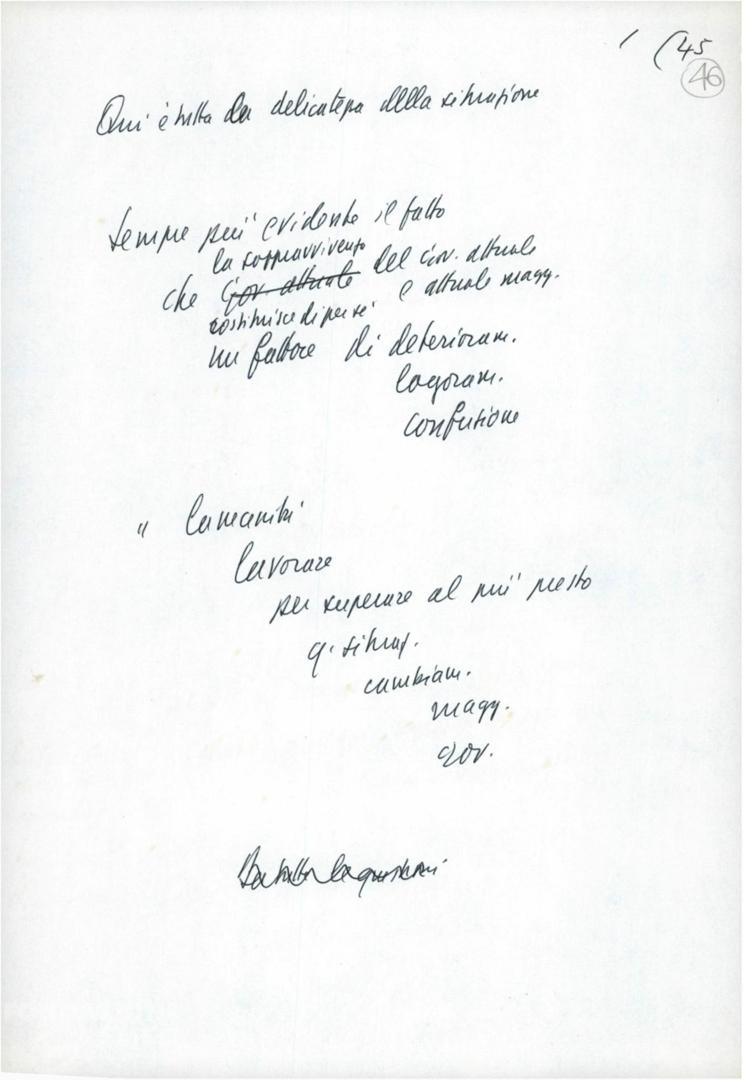 1 (45
46
Qui è tutta la delicatezza della situazione
Sempre più evidente il fatto
la sopravvivenza
che Gov. attuale del Gov. attuale
costituisce di per sé e attuale magg.
un fattore diterioram.
logoram.
confusione
"
lavorare
per superare al più presto
q. situaz.
cambiam.
magg.
gov.